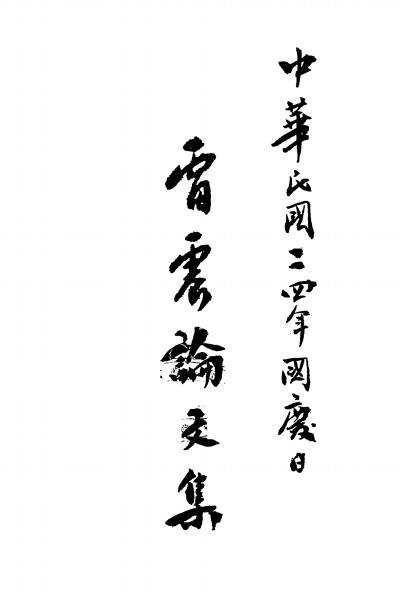 中華民國二四年國慶日
雷震論文集